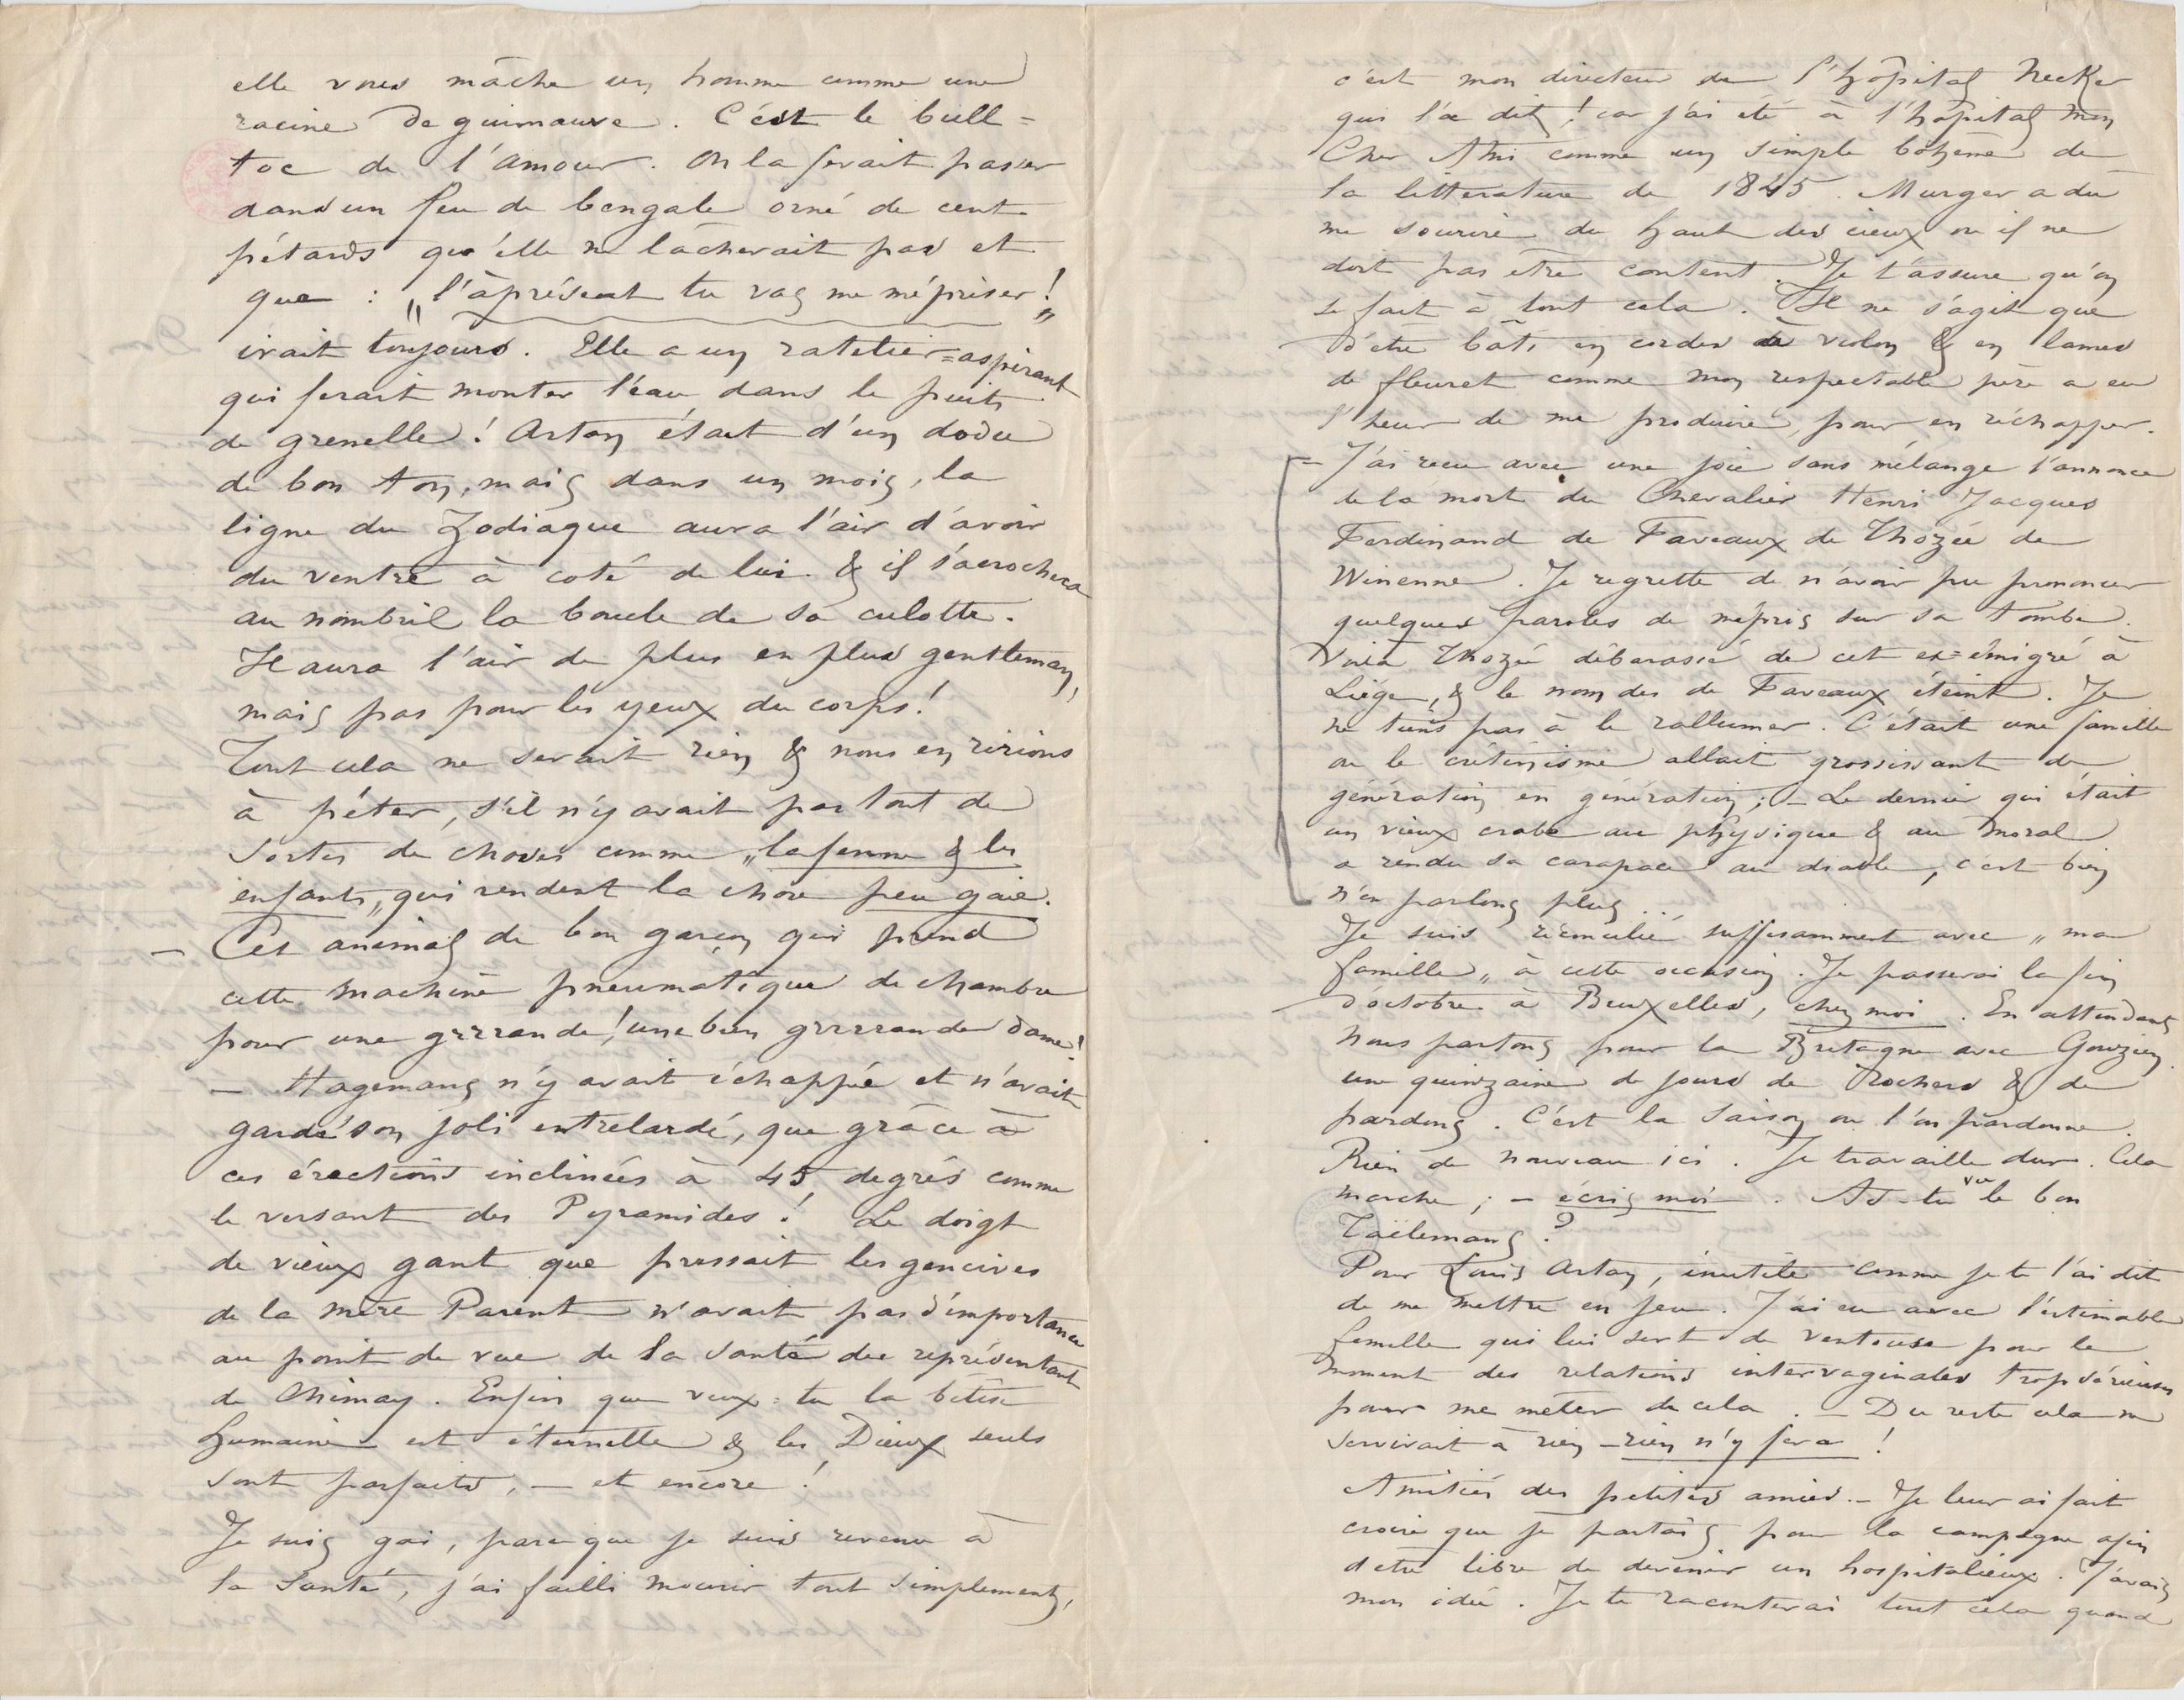 elle vous mâche un homme comme une
racine de guimauve. C'est le bull=
toc de l'amour. On la ferait passer
dans un feu de bengale orné de cent
pétards qu'elle ne lâcherait pas et
que : „l'àprésent tu vas me mépriser!„
irait toujours. Elle a un ratelier=aspirant
qui ferait monter l'eau dans le puits
de grenelle! Artan était d'un dodu
de bon ton, mais dans un mois, la
ligne du Zodiaque aura l'air d'avoir
du ventre à coté de lui. & il s'acrochera
au nombril la boucle de sa culotte.
Il aura l'air de plus en plus gentleman,
mais pas pour les yeux du corps!
Tout cela ne serait rien & nous en ririons
à péter, s'il n'y avait pas tout de
sortes de choses comme „la femme & les
enfants„ qui rendent la chose peu gaie.
— Cet animal de bon garçon qui prend
cette machine pneumatique de chambre
pour une grrrande! une bien grrrrande dame!
— Hagemans n'y avait échappé et n'avait
gardé son joli entrelardé, que grâce à
ces érections inclinées à 45 degrés comme
le versant des Pyramides! Le doigt
de vieux gant que pressait les gencives
de la mère Parent n'avait pas d'importance
au point de vue de la santé du représentant
de Chimay. Enfin que veux=tu la bêtise
humaine est éternelle & les Dieux seuls
sont parfaits, — et encore!
Je suis gai, parceque je suis revenu à
la santé, j'ai failli mourir tout simplement,
c'est mon directeur de l'hôpital Necker
qui l'a dit! car j'ai été à l'hôpital mon
Cher Ami comme un simple bohème de
la litterature de 1845. Murger a dû
me sourire du haut des cieux ou il ne
doit pas être content. Je t'assure qu'on
se fait à tout cela. Il ne s'agit que
d'etre bâti en cordes de violon & en lames
de fleuret comme mon respectable père a eu
l'heur de me produire, pour en réchapper.
— J'ai recu avec une joie sans mélange l'annonce
de la mort du Chevalier Henri Jacques
Ferdinand de Faveaux de Thozée de
Winenne. Je regrette de n'avoir pu prononcer
quelques paroles de mépris sur sa tombe.
Voila Thozée débarassé de cet ex=émigré à
Liège, & le nom des de Faveaux éteint. Je
ne tiens pas à le rallumer. C'était une famille
ou le crétinisme allait grossissant de
génération en génération; — Le dernier qui était
un vieux crabe au physique & au moral
a rendu sa carapace au diable, c'est bien
n'en parlons plus
Je suis réconcilié suffisamment avec „ma
famille„ à cette occasion. Je passerai la fin
d'octobre à Bruxelles, chez moi. En attendant
nous partons pour la Bretagne avec Gouzien
une quinzaine de jours de Rochers & de
pardons. C'est la saison ou l'on pardonne.
Rien de nouveau ici. Je travaille dur. Cela
marche; — écris moi. As-tu vu le bon
Taëlemans?
Pour Louis Artan, inutile comme je te l'ai dit
de me mettre en jeu. J'ai eu avec l'estimable
femelle qui lui sert de ventouse pour le
moment des relations intervaginales trop sérieuses
pour me mêler de cela. — Du reste cela ne
servirait à rien — rien n'y fera!
Amitiés des petites amies. — Je leur ai fait
croire que je partais pour la campagne afin
d'etre libre de devenir un hospitalieux. J'avais
mon idée. Je te raconterai tout cela quand